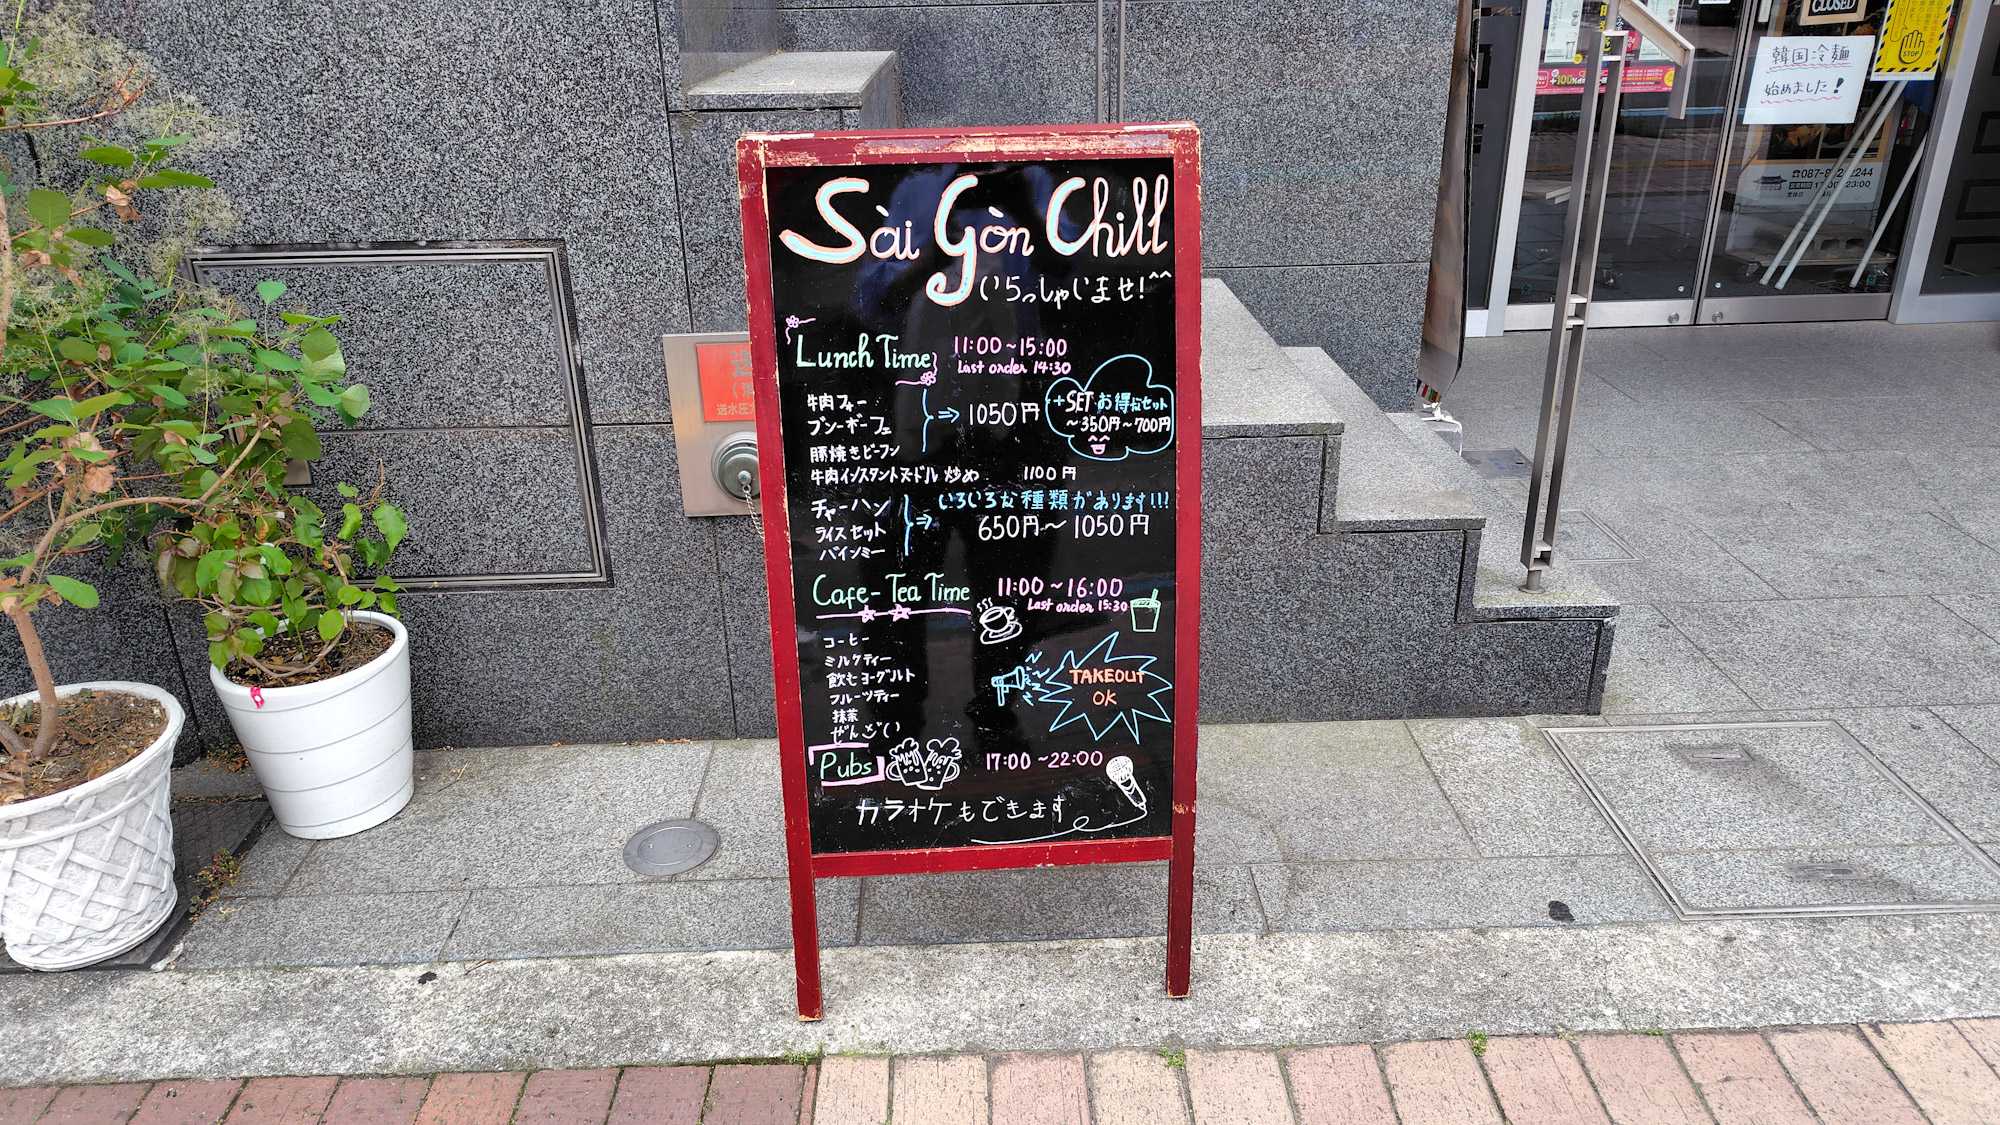 Sài Gòn Chill
いらっしゃいませ!^^
Lunch Time 11:00~15:00
Last order 14:30
牛肉フォー
ブンーボーフェ
豚焼きビーフン
⇒ 1050円
+SET お得なセット
~350円~700円
牛肉インスタントヌードル炒め 1100円
チャーハン
ライスセット
バインミー
⇒ いろいろな種類があります!!!
650円~1050円
Cafe-Tea Time 11:00~16:00
Last order 15:30
コーヒー
ミルクティー
飲むヨーグルト
フルーツティー
抹茶
ぜんざい
TAKEOUT
OK
Pubs 17:00~22:00
カラオケもできます
CLOSED
韓国冷麺
始めました!
STOP
送水圧力